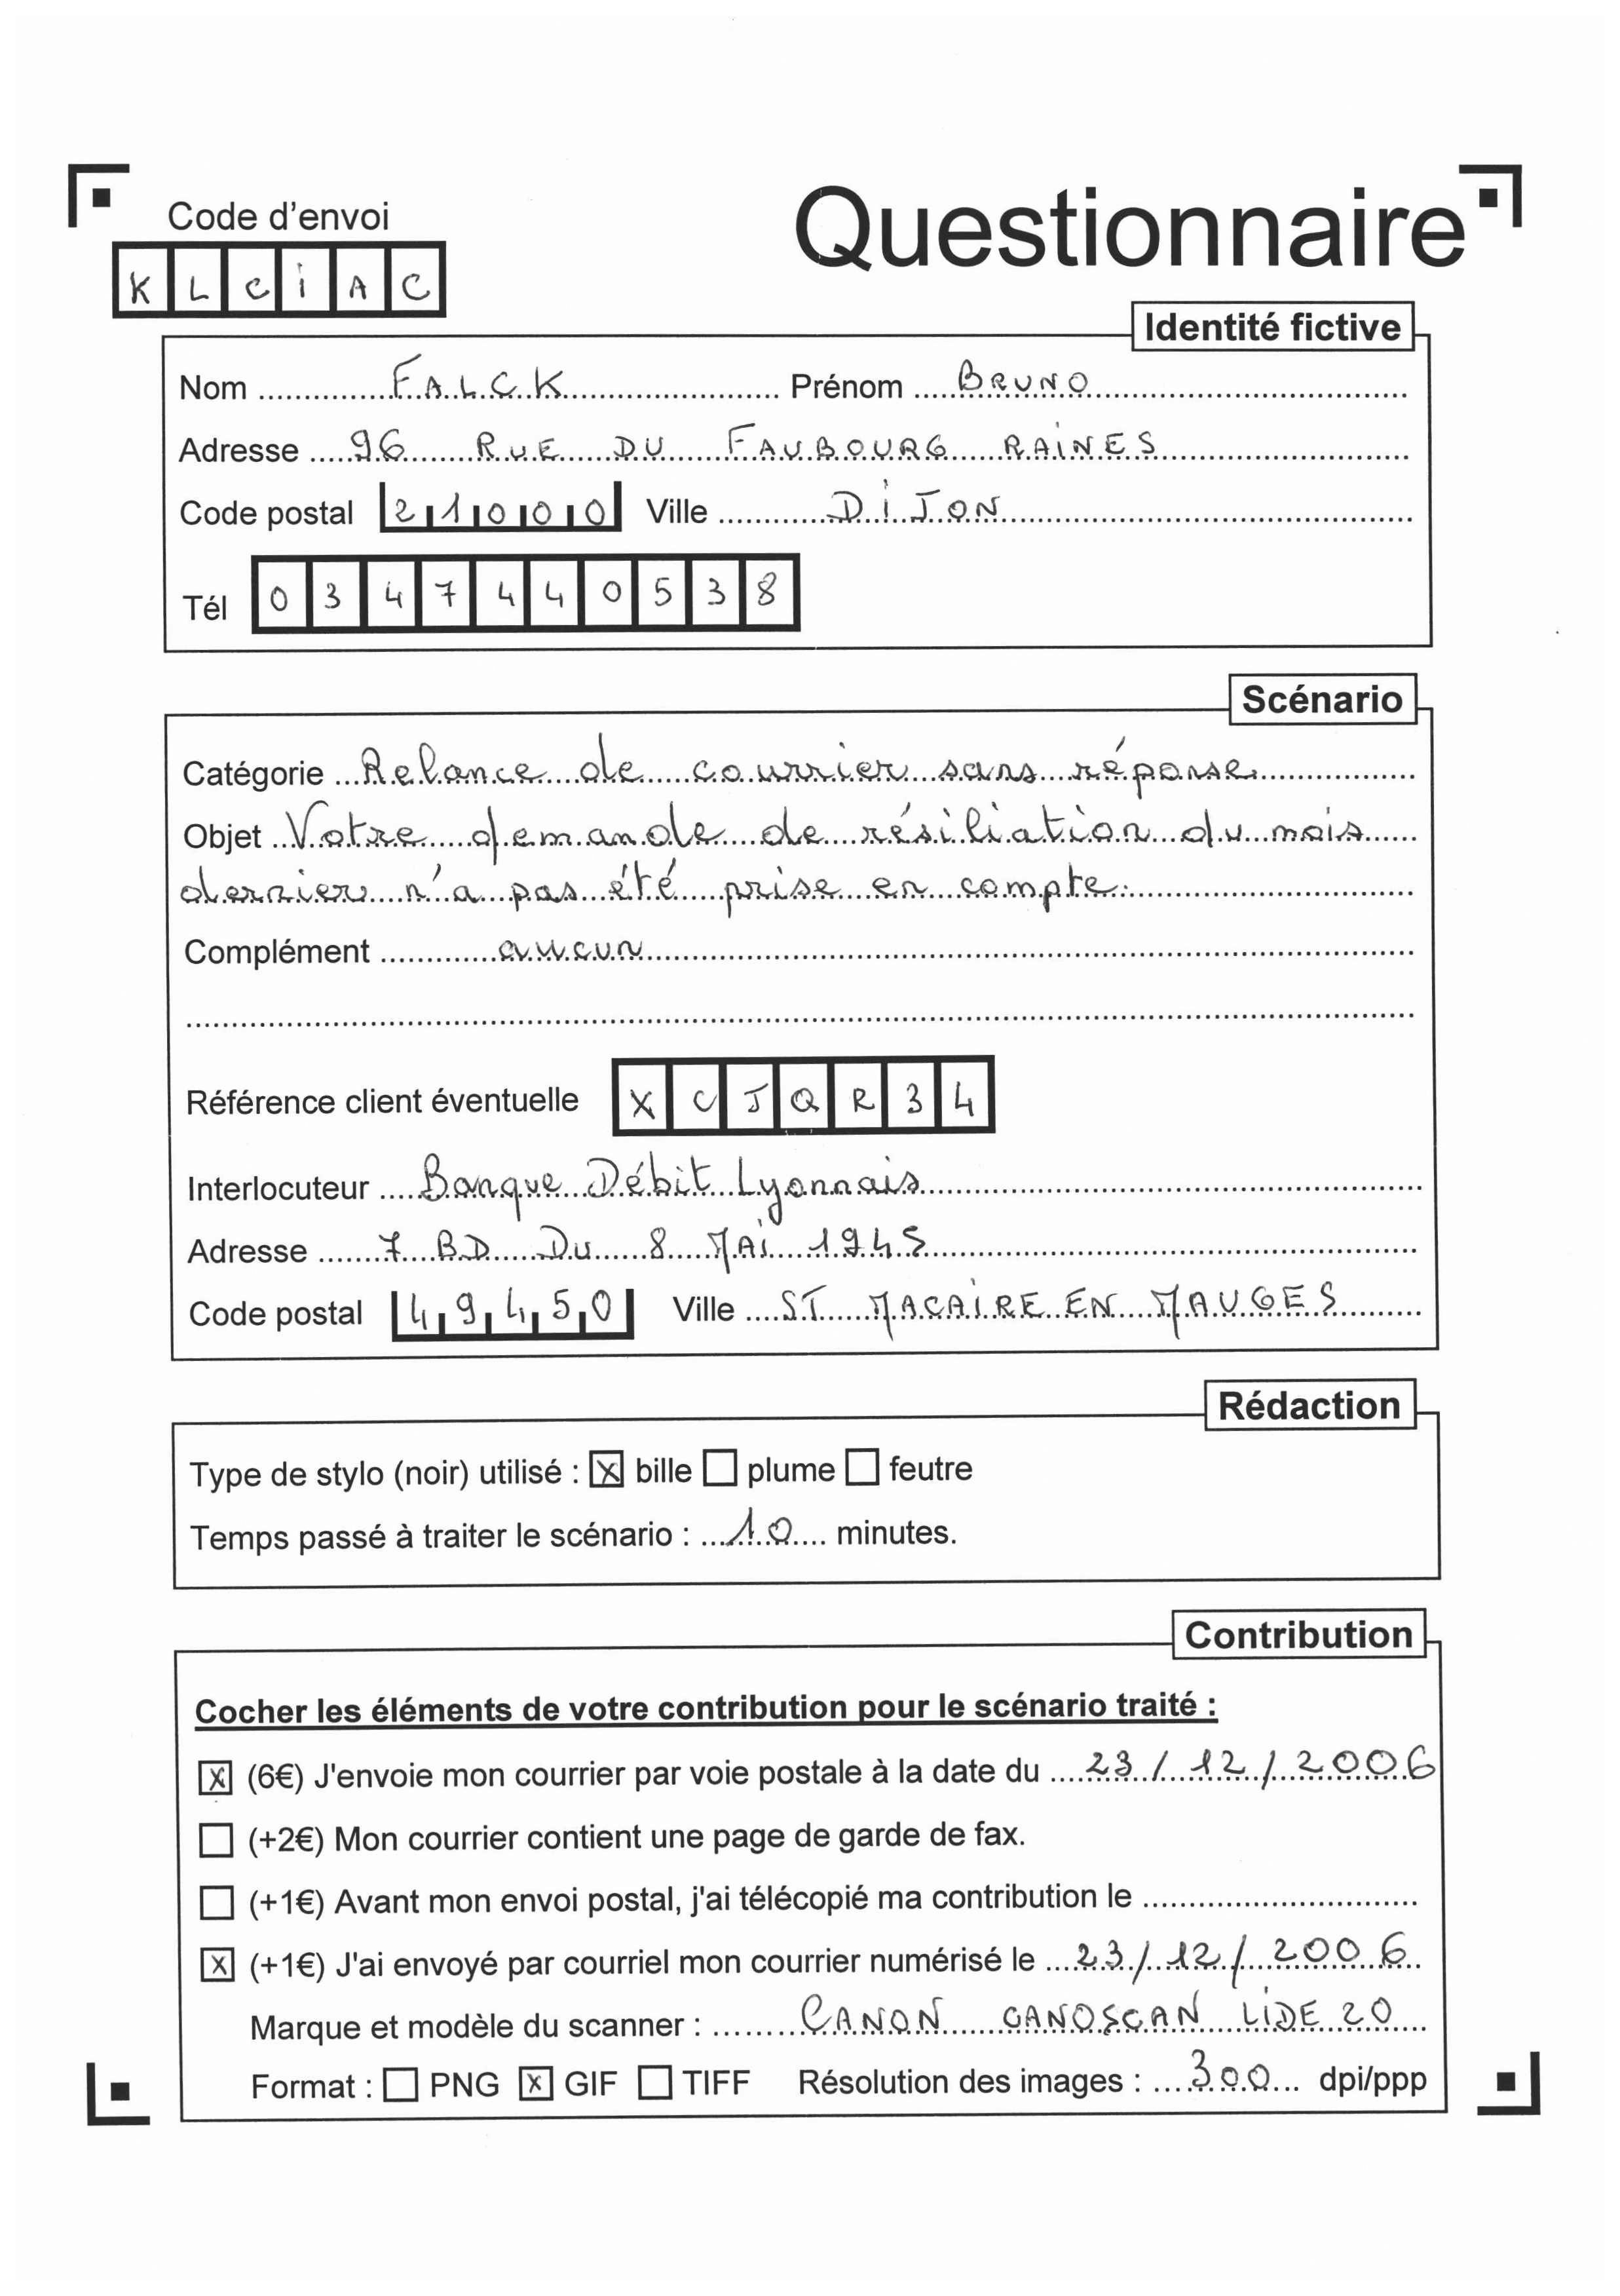 Code d'envoi
Questionnaire
KLCiAC
Identité fictive
Nom FALCK Prénom BRUNO
Adresse 96 RUE DU FAUBOURG RAINES
Code postal 21000 Ville DiJON
Tél 0347440538
Scénario
Catégorie Relance de courrier sans réponse
Objet Votre demande de résiliation du mois
dernier n'a pas été prise en compte.
Complément aucun
Référence client éventuelle XCJQR34
Interlocuteur Banque Débit Lyonnais
Adresse 7 BD DU 8 MAi 1945
Code postal 49450 Ville ST MACAIRE EN MAUGES
Rédaction
Type de stylo (noir) utilisé : ☒ bille ☐ plume ☐ feutre
Temps passé à traiter le scénario : 10 minutes.
Contribution
Cocher les éléments de votre contribution pour le scénario traité :
☒ (6€) J'envoie mon courrier par voie postale à la date du 23/12/2006
☐ (+2€) Mon courrier contient une page de garde de fax.
☐ (+1€) Avant mon envoi postal, j'ai télécopié ma contribution le
☒ (+1€) J'ai envoyé par courriel mon courrier numérisé le 23/12/2006
Marque et modèle du scanner : CANON CANOSCAN LiDE 20
Format : ☐ PNG ☒ GIF ☐ TIFF Résolution des images : 300 dpi/ppp